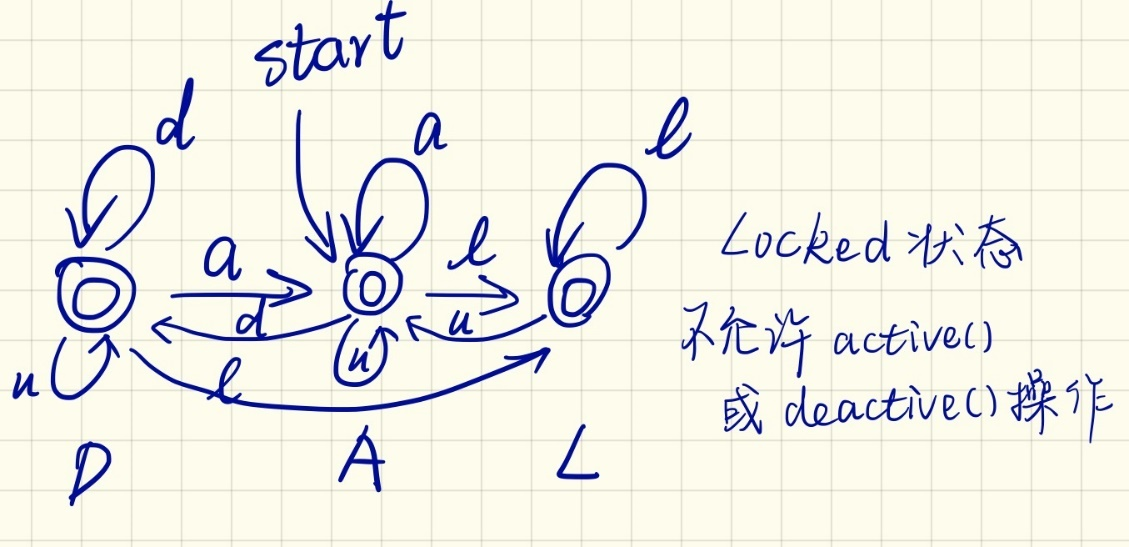 start
d
a
l
a
l
d
u
u
u
l
D
A
L
Locked 状态
不允许 active()
或 deactive() 操作